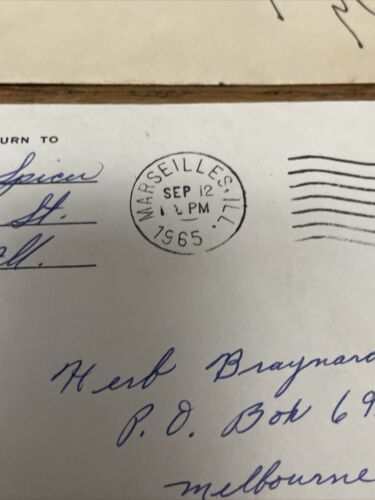 URN TO
Spicer
St.
Ill.
MARSEILLES, ILL.
SEP 12
PM
1965
Herb Braynard
P. O. Box 69
Melbourne